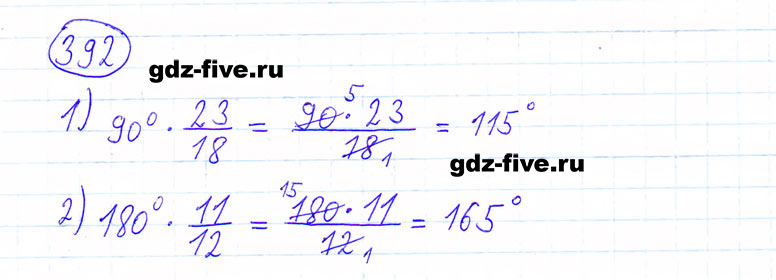 392
gdz-five.ru
1) 90° · 23/18 = 90 · 23/18 = 115°
5
1
gdz-five.ru
2) 180° · 11/12 = 180 · 11/12 = 165°
15
1